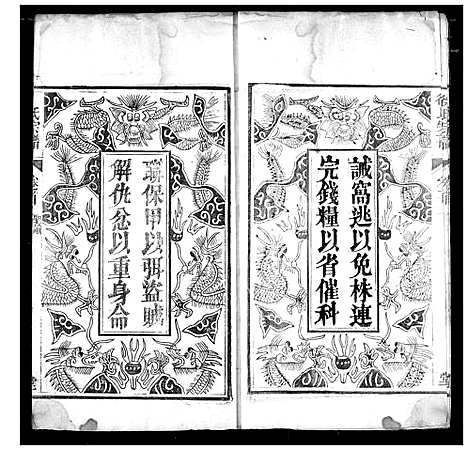 誠窩逃以免株連
完錢糧以省催科
聯保甲以弭盜賊
解仇忿以重身命